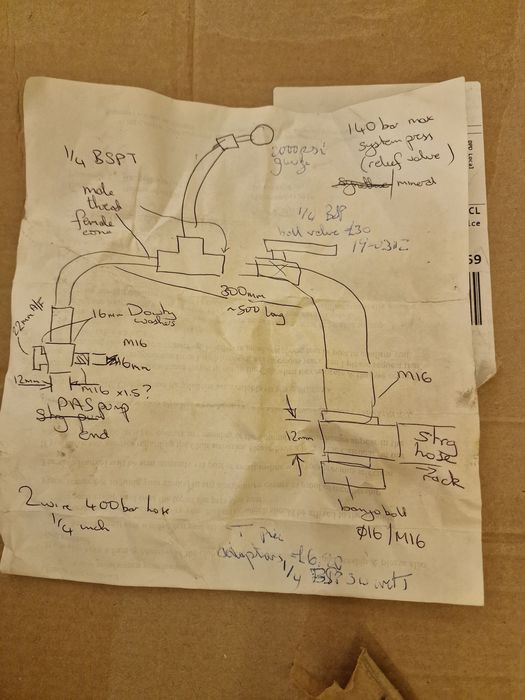 1/4 BSPT
male
thread
female
cone
2000psi
gauge
140 bar max
system press
(relief valve)
mineral
DPD Local
CL
59
1/4 BSP
ball valve £30
300mm
~500 long
22mm A/F
16mm Dowty
washers
M16
16mm
12mm
M16 x1.5?
PAS pump
strg pump
end
M16
12mm
strg
hose
rack
banjo bolt
Ø16/M16
2 wire 400 bar hose
1/4 inch
T
adaptors £6
1/4 BSP 3